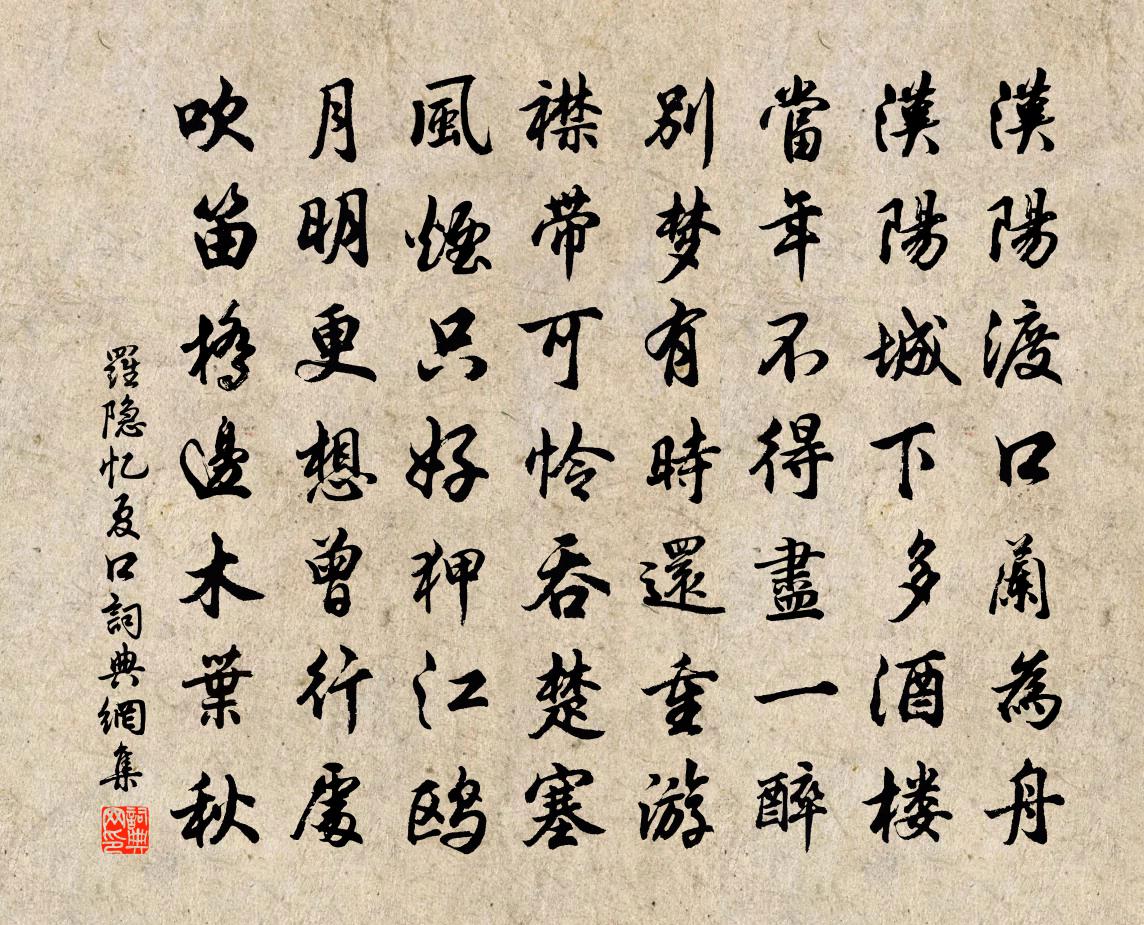 漢陽渡口蘭為舟
漢陽城下多酒楼
當年不得盡一醉
别梦有時還重游
襟帶可怜吞楚塞
風煙只好狎江鸥
月明更想曾行處
吹笛橋邊木葉秋
羅隐忆夏口詞典網集
詞典网印